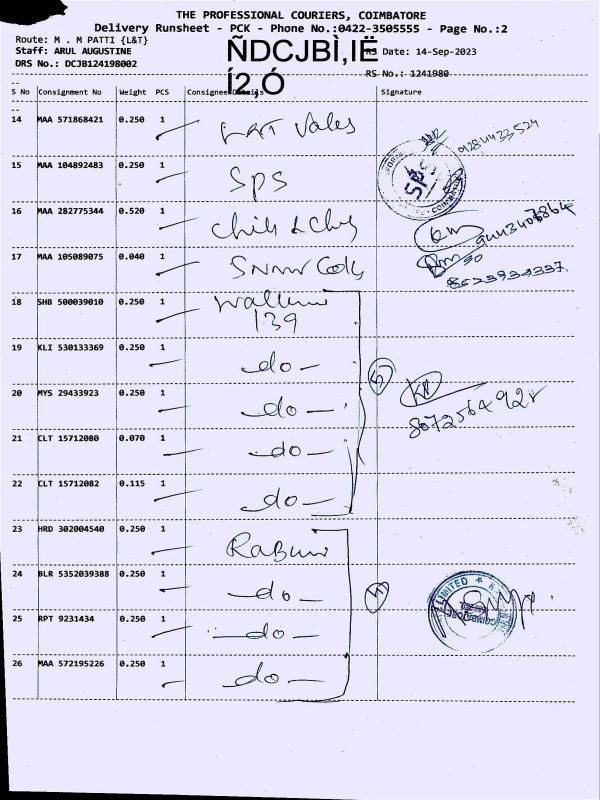 THE PROFESSIONAL COURIERS, COIMBATORE
Delivery Runsheet - PCK - Phone No.:0422-3505555 - Page No.:2
Route: M . M PATTI {L&T}
Staff: ARUL AUGUSTINE
ÑDCJBÌ,IË
RS Date: 14-Sep-2023
DRS No.: DCJB124198002
Í2,Ó
RS No.: 1241980
S No Consignment No Weight PCS Consignee Details Signature
14 MAA 571868421 0.250 1 L&T Vales
15 MAA 104892483 0.250 1 SPS
16 MAA 282775344 0.520 1
17 MAA 105089075 0.040 1
18 SHB 500039010 0.250 1
139
19 KLI 530133369 0.250 1 do
20 MYS 29433923 0.250 1 do
5
8072564928
21 CLT 15712080 0.070 1 do
22 CLT 15712082 0.115 1 do
23 HRD 302004540 0.250 1
24 BLR 5352039388 0.250 1 do
4
LIMITED
25 RPT 9231434 0.250 1 do
26 MAA 572195226 0.250 1 do